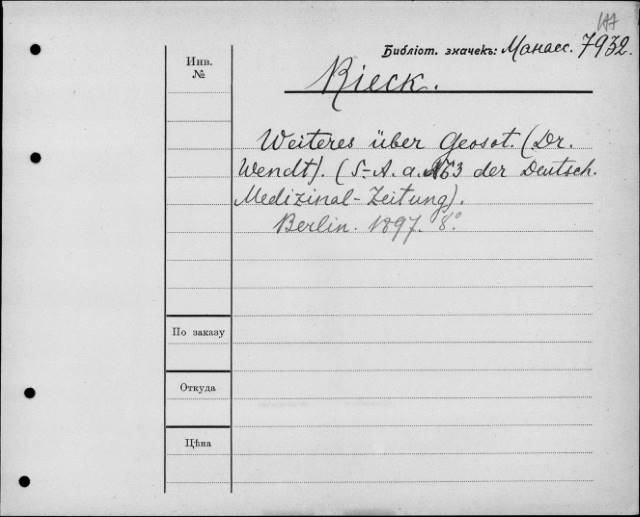 Библіот. значекъ: Манасс. 7932.
Rieck.
Инв.
№
Weiteres über Geosot. (Dr.
Wendt). (S.-A. a. №63 der Deutsch.
Medizinal-Zeitung).
Berlin. 1897. 8°.
По заказу
Откуда
Цѣна